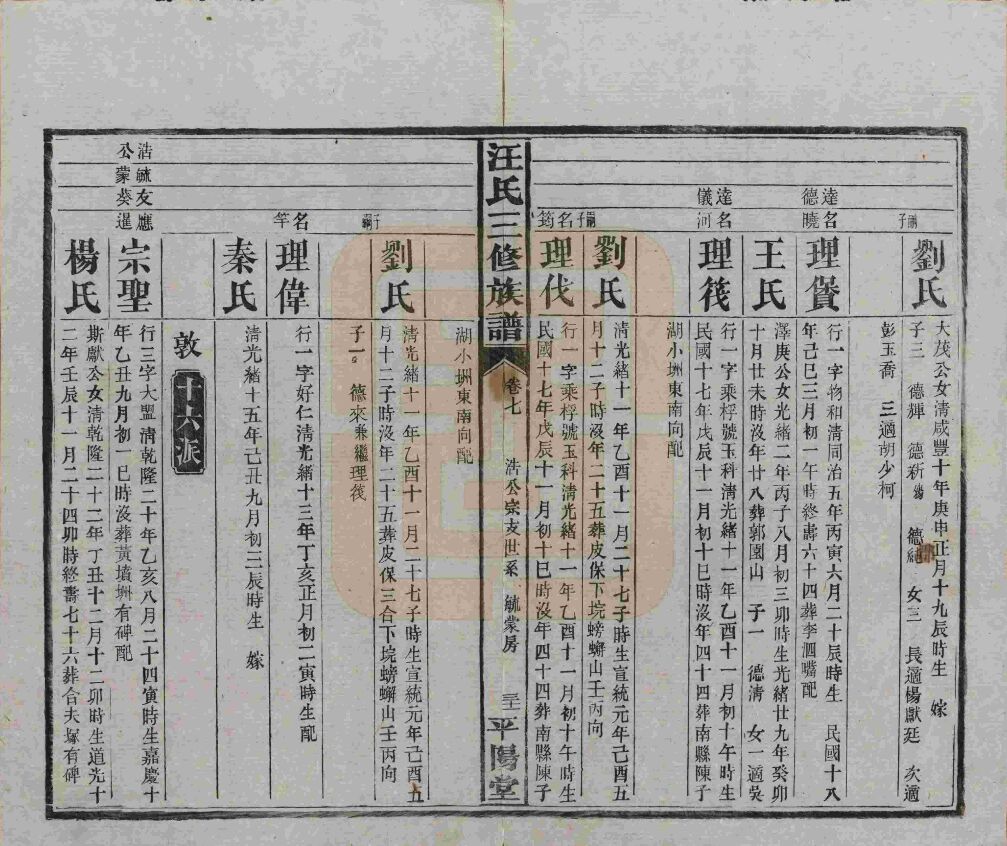 劉氏
大茂公女清咸豐十年庚申正月十九辰時生　嫁
子三　德輝　德新　德紀　女三　長適楊獻廷　次適
彭玉喬　三適胡少柯
達名
德曉
理賢
行一字物和清同治五年丙寅六月二十辰時生　民國十八
年己巳三月初一午時終壽六十四葬李泗嘴配
王氏
澤庚公女光緒二年丙子八月初三卯時生光緒廿九年癸卯
十月廿未時沒年廿八葬郭園山　子一　德清　女一適吳
達名
儀河
理筏
行一字乘桴號玉科清光緒十一年乙酉十一月初十午時生
民國十七年戊辰十一月初十巳時沒年四十四葬南縣陳子
湖小洲東南向配
劉氏
清光緒十一年乙酉十一月二十七子時生宣統元年己酉五
月十二子時沒年二十五葬皮保下垸螃蠏山壬丙向
名筠
理伐
行一字乘桴號玉科清光緒十一年乙酉十一月初十午時生
民國十七年戊辰十一月初十巳時沒年四十四葬南縣陳子
汪氏三修族譜
卷七
浩公宗支世系　毓蒙房
平陽堂
湖小洲東南向配
劉氏
清光緒十一年乙酉十一月二十七子時生宣統元年己酉五
月十二子時沒年二十五葬皮保三合下垸螃蠏山壬丙向
子一　德來兼繼理筏
名竿
理偉
行一字好仁清光緒十三年丁亥正月初二寅時生配
秦氏
清光緒十五年己丑九月初三辰時生　嫁
敦
十六派
浩毓友應
公蒙葵暹
宗聖
行三字大盟清乾隆二十年乙亥八月二十四寅時生嘉慶十
年乙丑九月初一巳時沒葬黃墳坤有碑配
楊氏
斯獻公女清乾隆二十二年丁丑十二月十二卯時生道光十
二年壬辰十一月二十四卯時終壽七十六葬合夫塚有碑